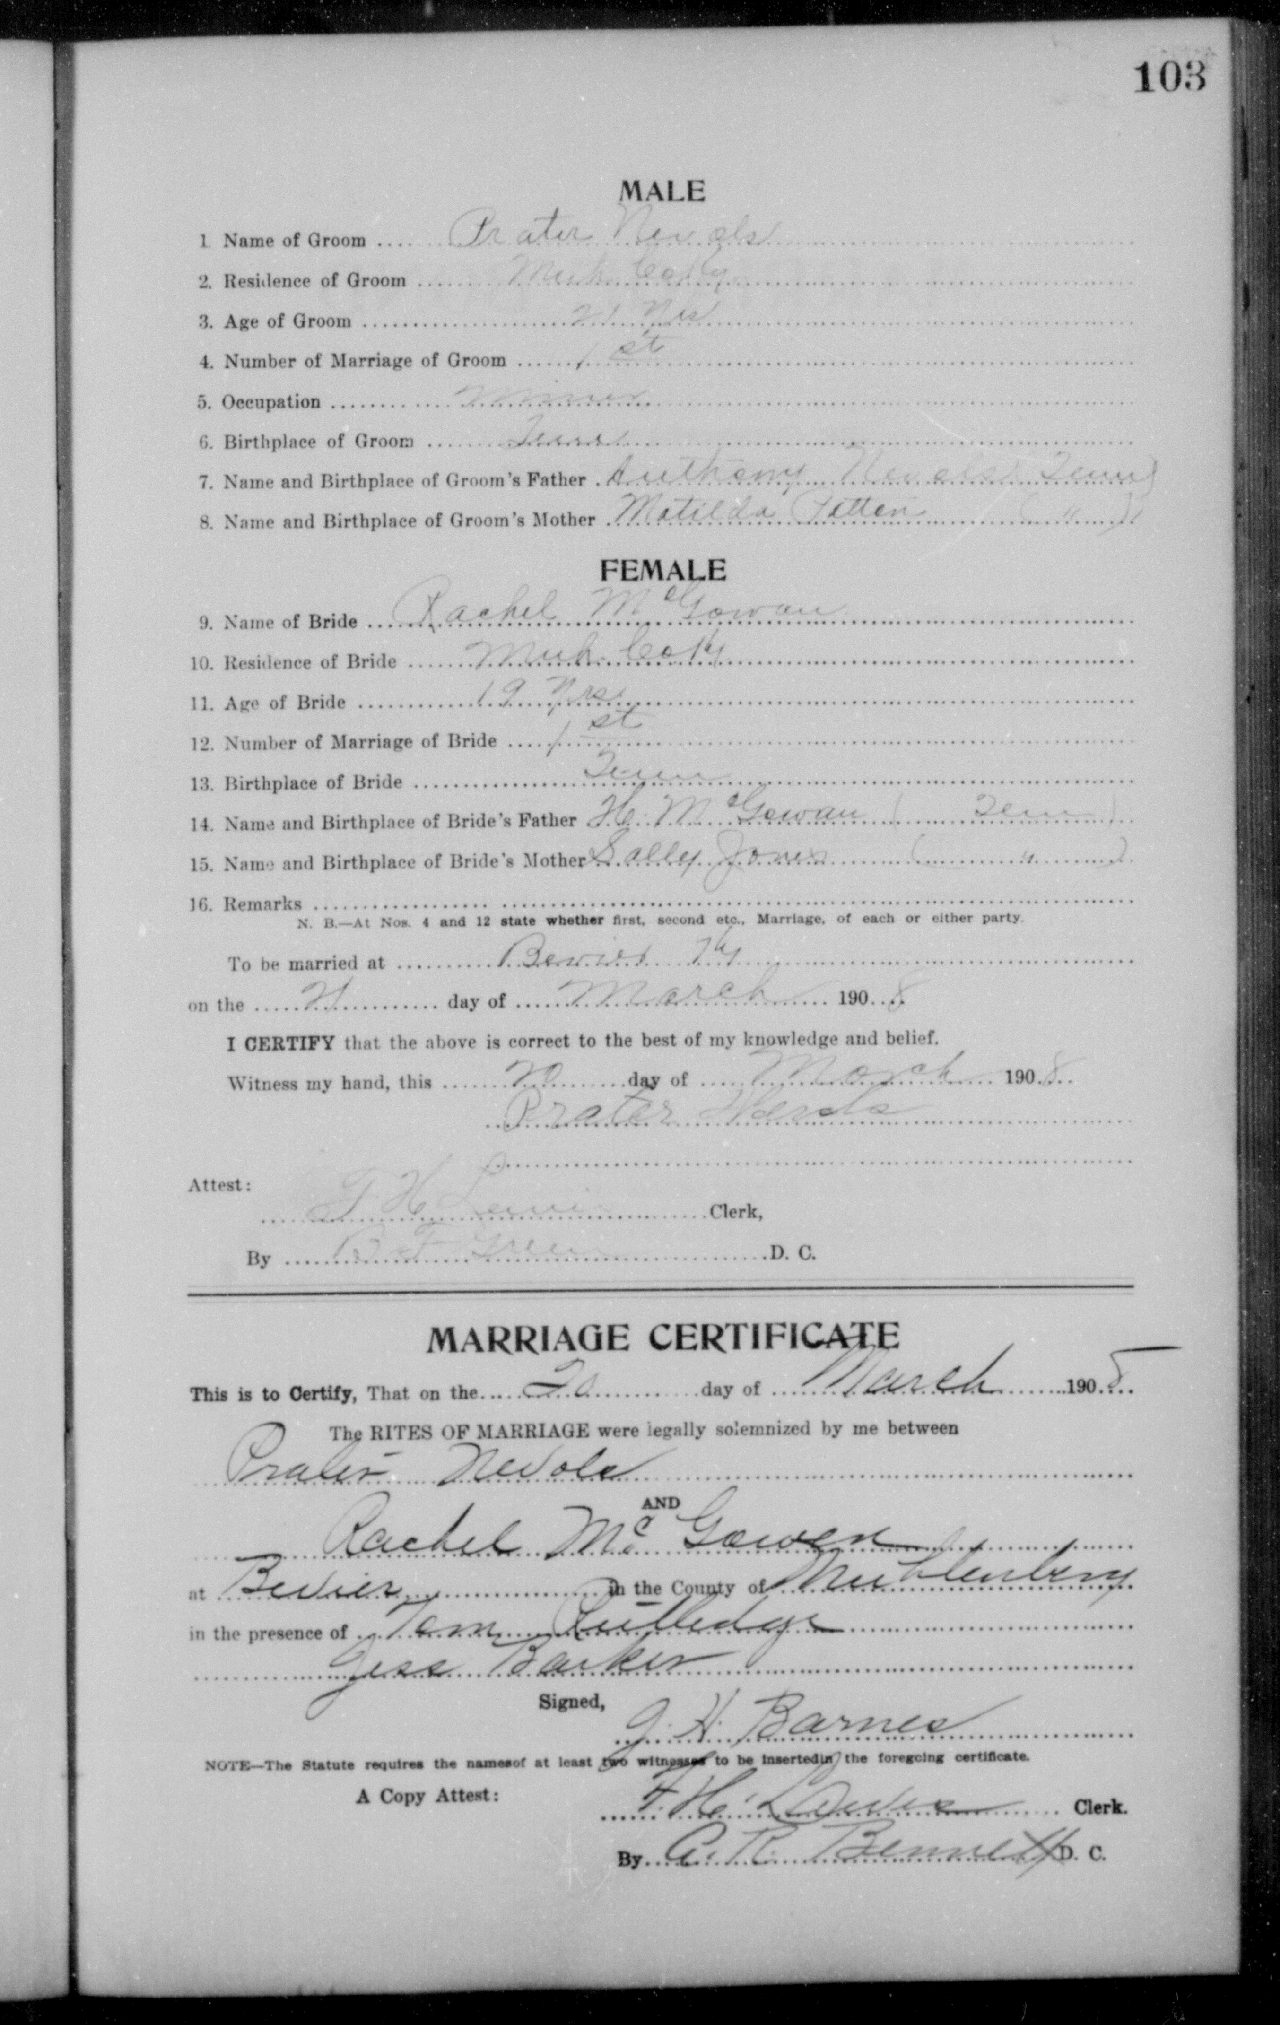 103
MALE
1 Name of Groom Prater Nevols
2. Residence of Groom Muh. Co Ky
3. Age of Groom 21 Yrs
4. Number of Marriage of Groom 1st
5. Occupation Miner
6. Birthplace of Groom Tenn
7. Name and Birthplace of Groom's Father Anthony Nevols Tenn)
8. Name and Birthplace of Groom's Mother Matilda Patten ( " )
FEMALE
9. Name of Bride Rachel McGowan
10. Residence of Bride Muh. Co Ky
11. Age of Bride 19 Yrs
12. Number of Marriage of Bride 1st
13. Birthplace of Bride Tenn
14. Name and Birthplace of Bride's Father H. McGowan ( Tenn )
15. Name and Birthplace of Bride's Mother Salley Jones ( " )
16. Remarks
N. B.—At Nos. 4 and 12 state whether first, second etc., Marriage, of each or either party.
To be married at Bevier Ky
on the 21 day of March 1908
I CERTIFY that the above is correct to the best of my knowledge and belief.
Witness my hand, this 20 day of March 1908
Prater
Attest:
T H Lewis Clerk,
By Green D. C.
MARRIAGE CERTIFICATE
This is to Certify, That on the 20 day of March 1908
The RITES OF MARRIAGE were legally solemnized by me between
Prater Nevols
AND
Rachel Mc Gowen
at Bevier in the County of Muhlenberg
in the presence of Tom Rutledge
Jess Barker
Signed,
J. H. Barnes
NOTE—The Statute requires the namesof at least two witnesses to be insertedin the foregoing certificate.
A Copy Attest:
T. H. Lewis Clerk.
By C. R. Bennett D. C.